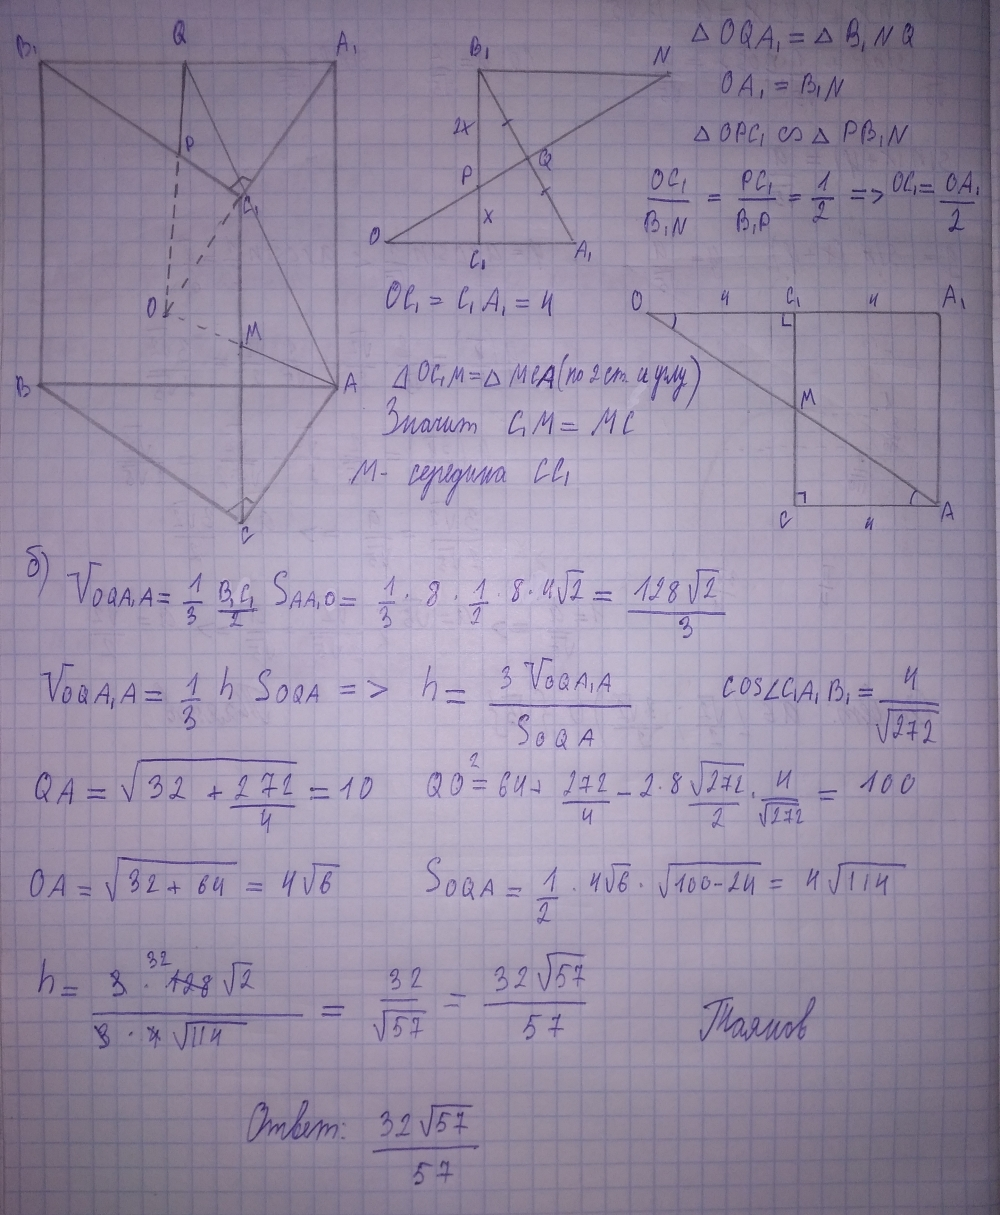 B₁ Q A₁
P
C₁
O
M
B A
C
B₁ N
2x
Q
P
x
O C₁ A₁
△ OQA₁ = △ B₁NQ
OA₁ = B₁N
△ OPC₁ ∽ △ PB₁N
OC₁/B₁N = PC₁/B₁P = 1/2 => OC₁ = OA₁/2
OC₁ = C₁A₁ = 4
O 4 C₁ 4 A₁
M
C 4 A
△ OC₁M = △ MCA (по 2 ст. и углу)
Значит C₁M = MC
M - середина CC₁
б) V_OQA₁A = 1/3 B₁C₁/2 S_AA₁O = 1/3 · 8 · 1/2 · 8 · 4√2 = 128√2/3
V_OQA₁A = 1/3 h S_OQA => h = 3 V_OQA₁A / S_OQA cos∠C₁A₁B₁ = 4/√272
QA = √(32 + 272/4) = 10 QO² = 64 + 272/4 - 2·8 √272/2 · 4/√272 = 100
OA = √(32 + 64) = 4√6 S_OQA = 1/2 · 4√6 · √(100-24) = 4√114
h = 3 · 128 32 √2 / 3 · 4 √114 = 32/√57 = 32√57/57
Ответ: 32√57/57